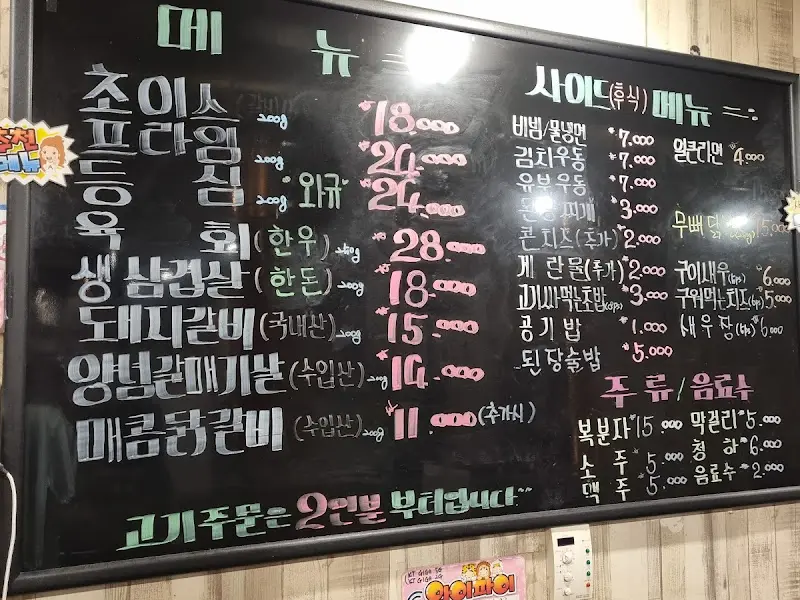 메 뉴
초이스 200g 18.000
프라임 200g 24.000
등 심 200g 와규 24.000
육 회 (한우) 28.000
생삼겹살 (한돈) 200g 18.000
돼지갈비 (국내산) 200g 15.000
양념갈매기살 (수입산) 200g 14.000
매콤닭갈비 (수입산) 200g 11.000 (추가시)
고기주문은 2인분 부터입니다^^
사이드(후식) 메뉴
비빔/물냉면 7.000
김치우동 7.000
유부우동 7.000
찌개 3.000
콘치즈(추가) 2.000
계란물(추가) 2.000
고기싸먹는초밥 3.000
공기밥 1.000
된장술밥 5.000
얼큰라면 4.000
무뼈닭 15.000
구이새우 6.000
구워먹는치즈 5.000
새우장 6.000
주류/음료수
복분자 15.000
소주 5.000
맥주 5.000
막걸리 5.000
청하 6.000
음료수 2.000
추천
메뉴
KT GIGA 5G
KT GIGA 2G
와이파이